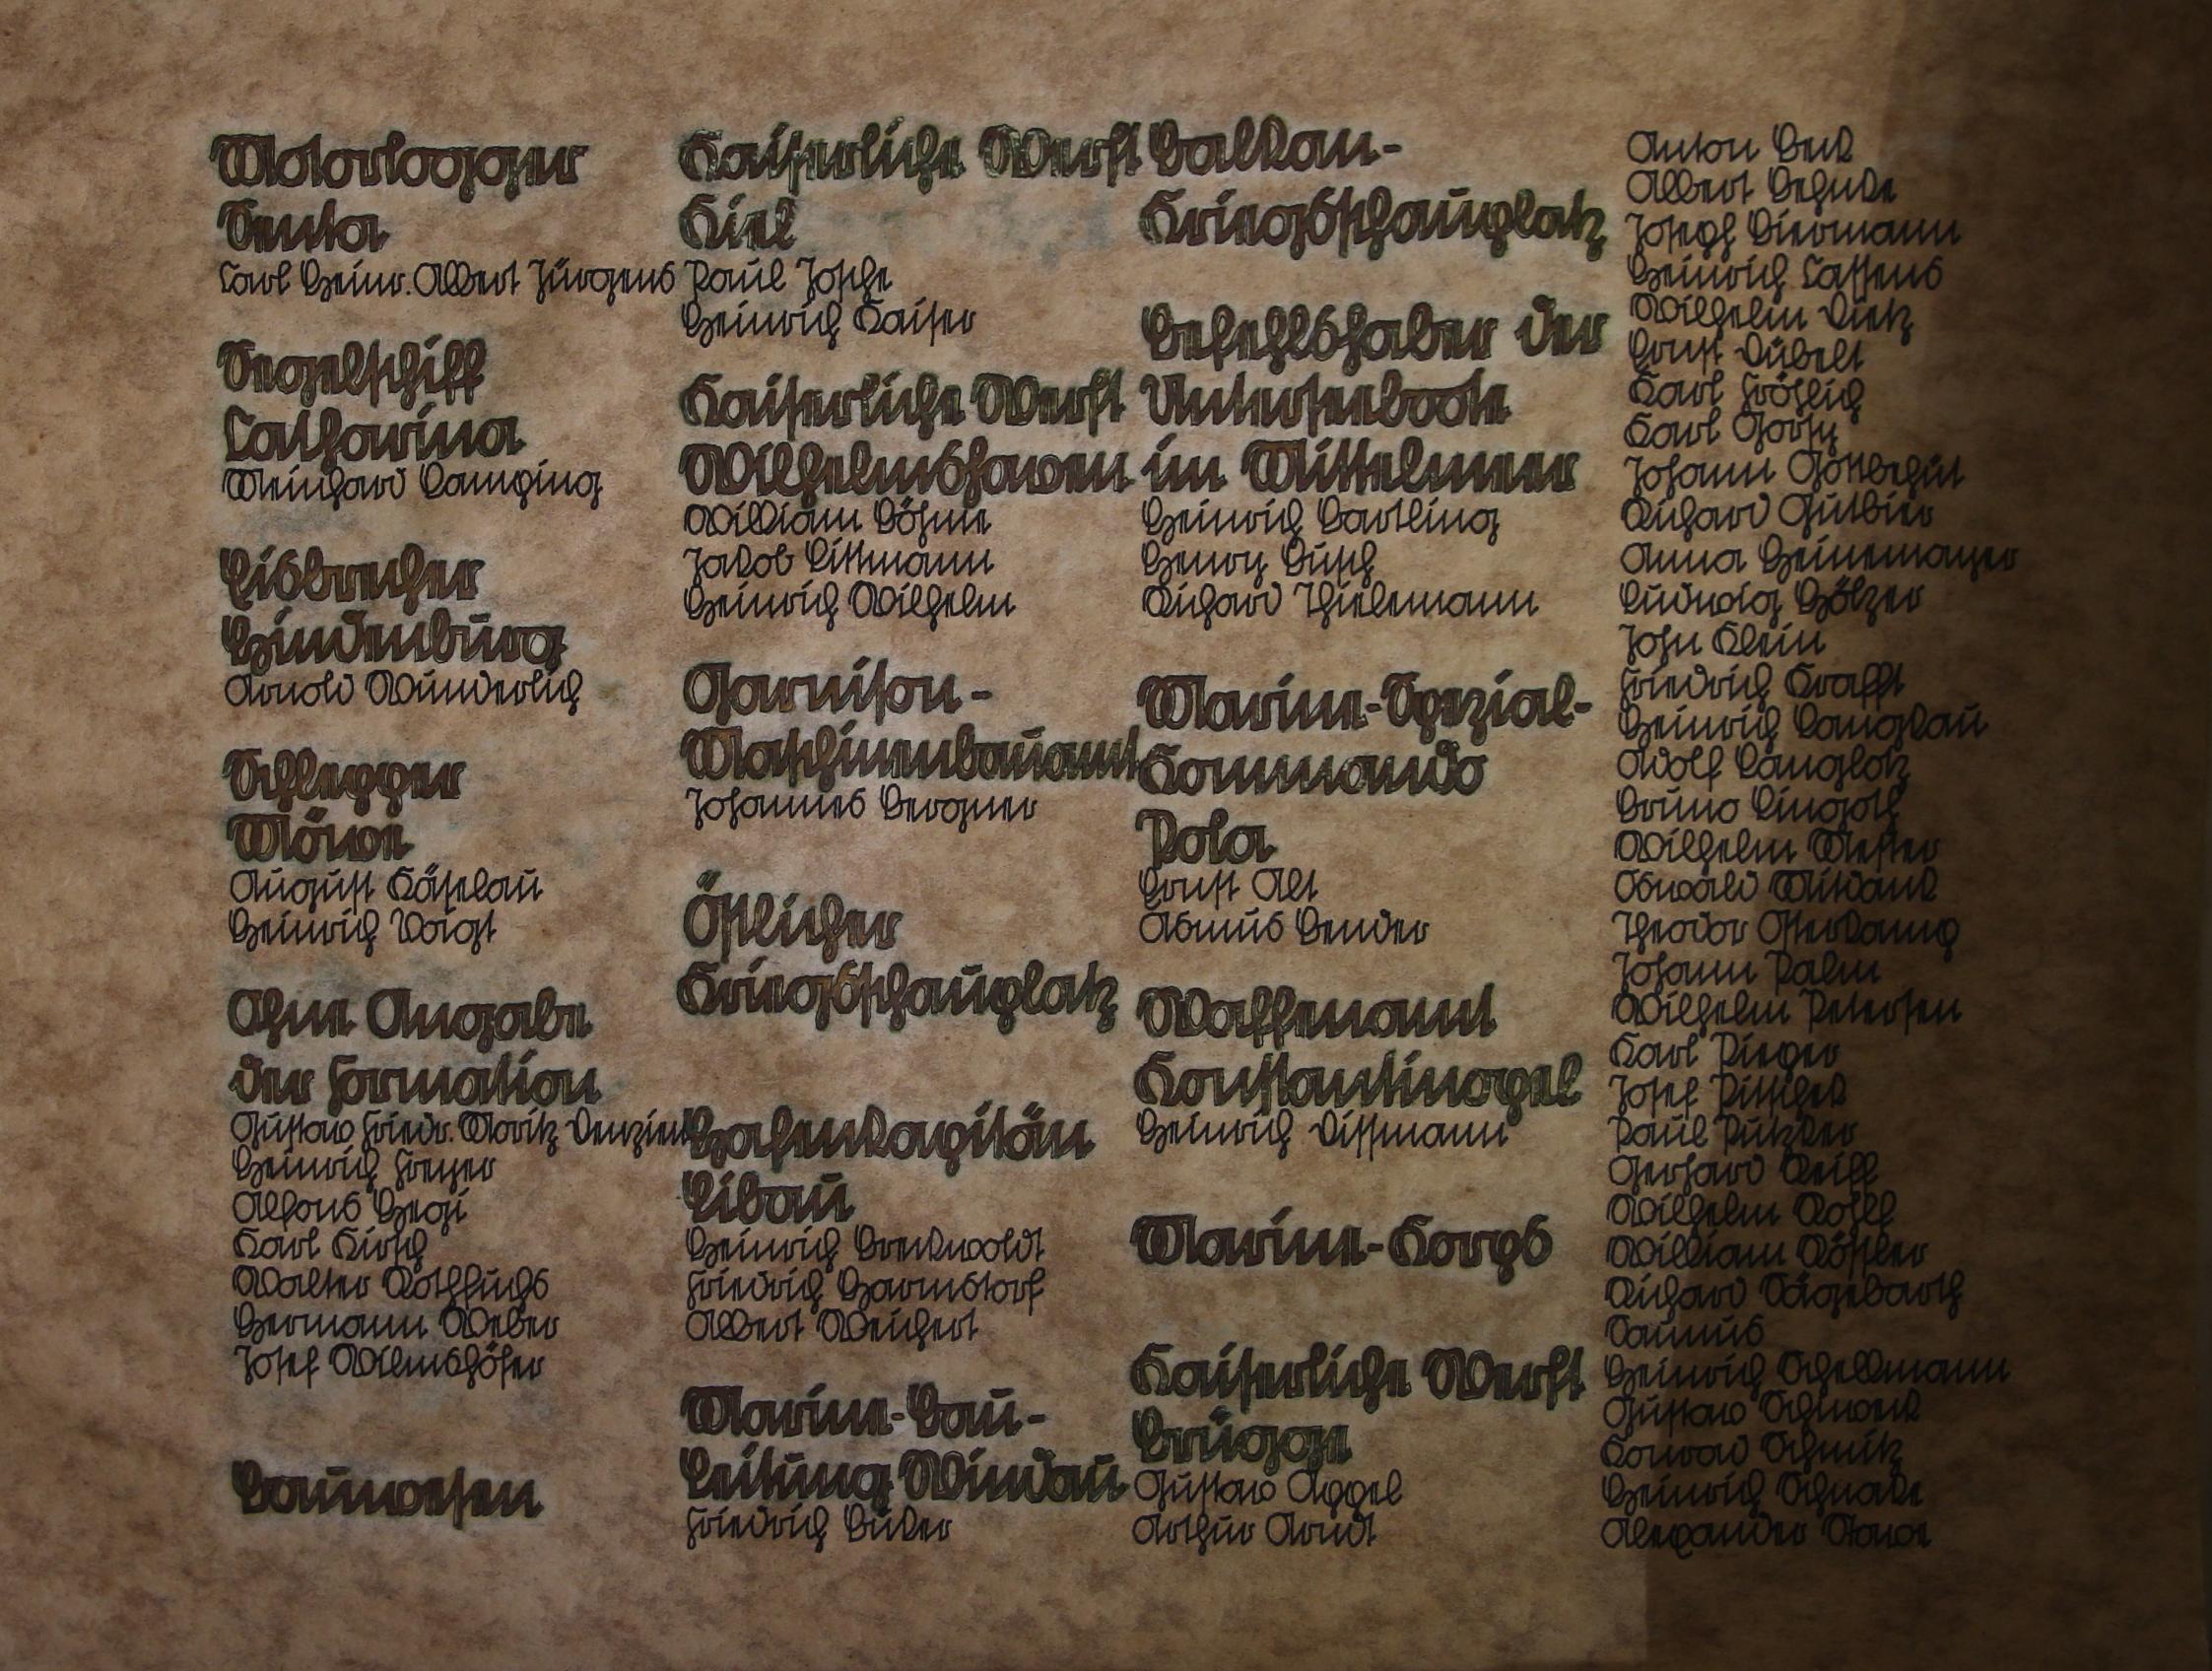 Motorlogger
Senta
Carl Heinr. Albert Jürgens
Segelschiff
Catharina
Meinhard Camping
Eisbrecher
Hindenburg
Arnold Wunderlich
Schlepper
Möwe
August Käselau
Heinrich Voigt
Ohne Angabe
der Formation
Gustav Friedr. Moritz Denzien
Heinrich Freyer
Alfons Hegi
Karl Kirsch
Walter Rothfuchs
Hermann Weber
Josef Wilmshöfer
Bauwesen
Kaiserliche Werft
Kiel
Paul Josche
Heinrich Kaiser
Kaiserliche Werft
Wilhelmshaven
William Böhme
Jakob Littmann
Heinrich Wilhelm
Garnison-
Maschinenbauamt
Johannes Bergner
Östlicher
Kriegsschauplatz
Hafenkapitän
Libau
Heinrich Breckwoldt
Friedrich Harmstorf
Albert Weichert
Marine-Bau-
Leitung Windau
Friedrich Büker
Balkan-
Kriegsschauplatz
Befehlshaber der
Unterseeboote
im Mittelmeer
Heinrich Bartling
Henry Busch
Richard Thielemann
Marine-Spezial-
Kommando
Pola
Ernst Alt
Asmus Bender
Waffenamt
Konstantinopel
Heinrich Dissmann
Marine-Korps
Kaiserliche Werft
Brügge
Gustav Appel
Arthur Arndt
Anton Beck
Albert Behnke
Joseph Biermann
Heinrich Cassens
Wilhelm Dietz
Ernst Dübelt
Karl Fröhlich
Karl Gorsy
Johann Gottergut
Richard Gutbier
Anna Heinemayer
Ludwig Hölzer
John Klein
Friedrich Krafft
Heinrich Langlau
Adolf Langlotz
Bruno Lingott
Wilhelm Mester
Oswald Mitdank
Theodor Osterkamp
Johann Palm
Wilhelm Petersen
Karl Pieper
Josef Pittschek
Paul Putzker
Gerhard Reiff
Wilhelm Rohlf
William Rössler
Richard Sagebarth
Saunus
Heinrich Schellmann
Gustav Schmock
Konrad Schmitz
Heinrich Schnake
Alexander Starce